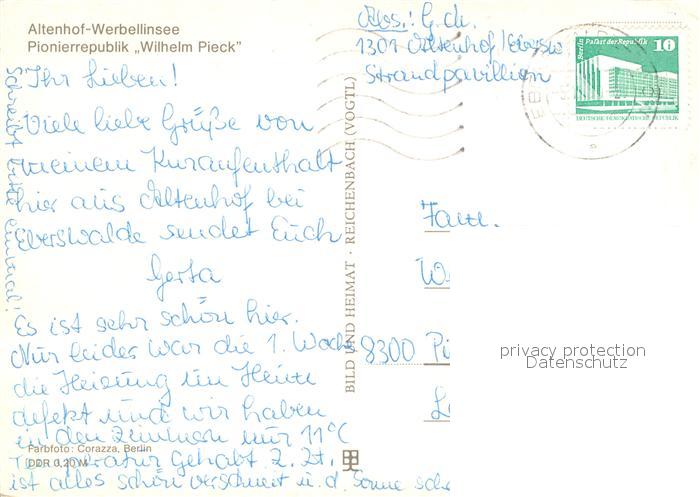 Altenhof-Werbellinsee
Pionierrepublik „Wilhelm Pieck"
Ihr Lieben!
Viele liebe Grüße von
meinem Kuraufenthalt
hier aus Altenhof bei
Eberswalde sendet Euch
Gerta
Es ist sehr schön hier.
Nur leider war die 1. Woche
die Heizung im Heim
defekt und wir haben
in den Zimmern nur 11°C
Temperatur gehabt. Z. Zt.
ist alles schön verschneit u. d. Sonne sch
Schreibt bitte einmal!
Farbfoto: Corazza, Berlin
DDR 0,20 M
BILD UND HEIMAT · REICHENBACH (VOGTL)
Abs.: G. ch.
1301 Altenhof/Ebersw
Strandpavillion
Berlin Palast der Republik 10
DEUTSCHE DEMOKRATISCHE REPUBLIK
Fam.
W
8300 Pi
L
privacy protection
Datenschutz